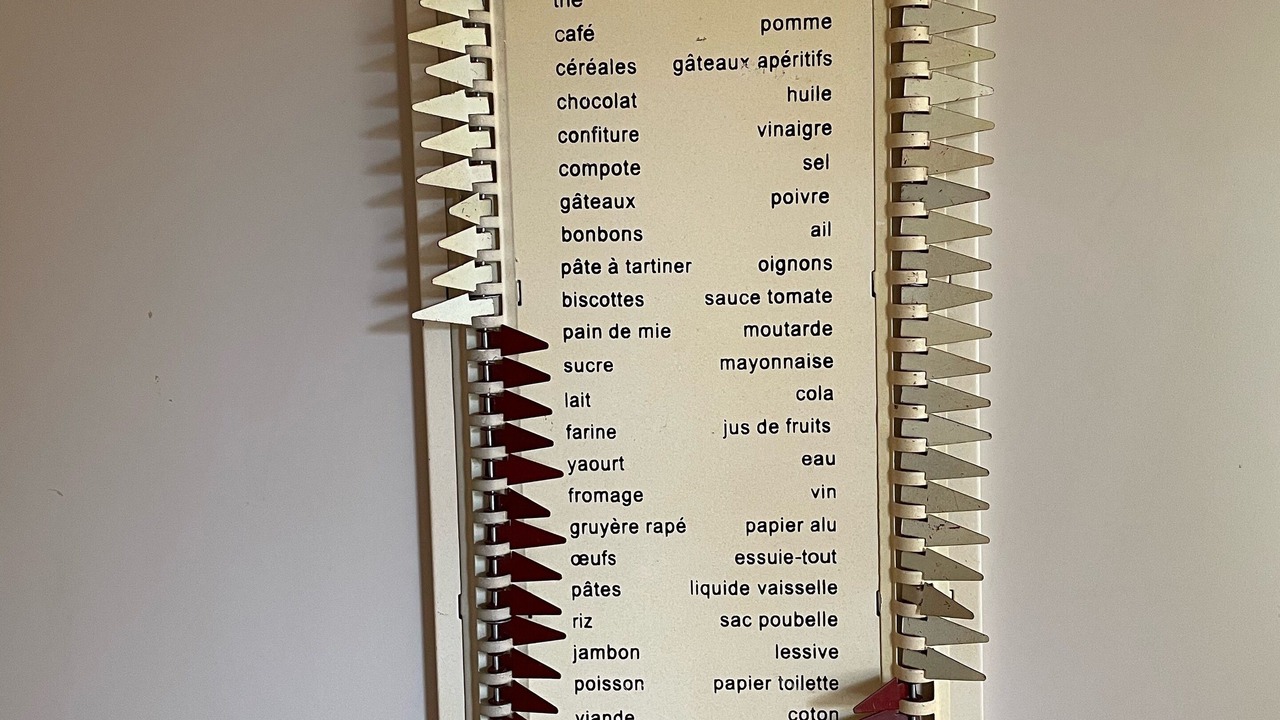 thé
café
céréales
chocolat
confiture
compote
gâteaux
bonbons
pâte à tartiner
biscottes
pain de mie
sucre
lait
farine
yaourt
fromage
gruyère rapé
œufs
pâtes
riz
jambon
poisson
viande
pomme
gâteaux apéritifs
huile
vinaigre
sel
poivre
ail
oignons
sauce tomate
moutarde
mayonnaise
cola
jus de fruits
eau
vin
papier alu
essuie-tout
liquide vaisselle
sac poubelle
lessive
papier toilette
coton